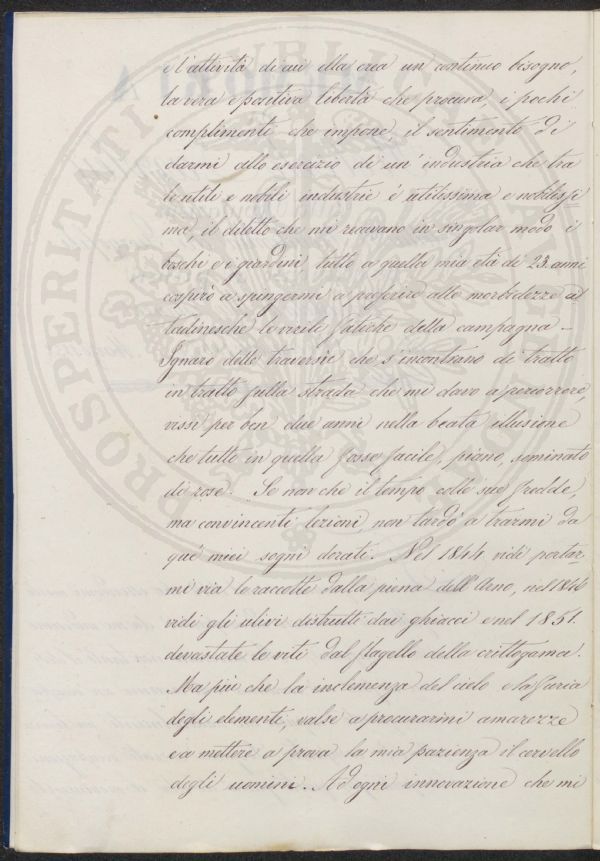 e l'attività di cui ella crea un continuo bisogno,
la vera e positiva libertà che procura, i pochi
complimenti che impone, il sentimento di
darmi allo esercizio di un' industria che tra
le utili e nobili industrie è utilissima e nobilissi
ma, il diletto che mi recavano in singolar modo i
boschi e i giardini, tutto a quella mia età di 23. anni
cospirò a spingermi a preferire alle morbidezze cit
tadinesche le virili fatiche della campagna –
Ignaro delle traversie che s'incontrano di tratto
in tratto sulla strada che mi davo a percorrere,
vissi per ben due anni nella beata illusione
che tutto in quella fosse facile, piano, seminato
di rose. Se non che il tempo colle sue fredde,
ma convincenti lezioni, non tardò a trarmi da
que' miei sogni dorati. Nel 1844 vidi portar-
mi via le raccolte dalla piena dell'Arno, nel 1846
vidi gli ulivi distrutti dai ghiacci e nel 1851.
devastate le viti dal flagello della crittogama.
Ma più che la inclemenza del cielo e la furia
degli elementi, valse a procurarmi amarezze
e a mettere a prova la mia pazienza il cervello
degli uomini. Ad ogni innovazione che mi